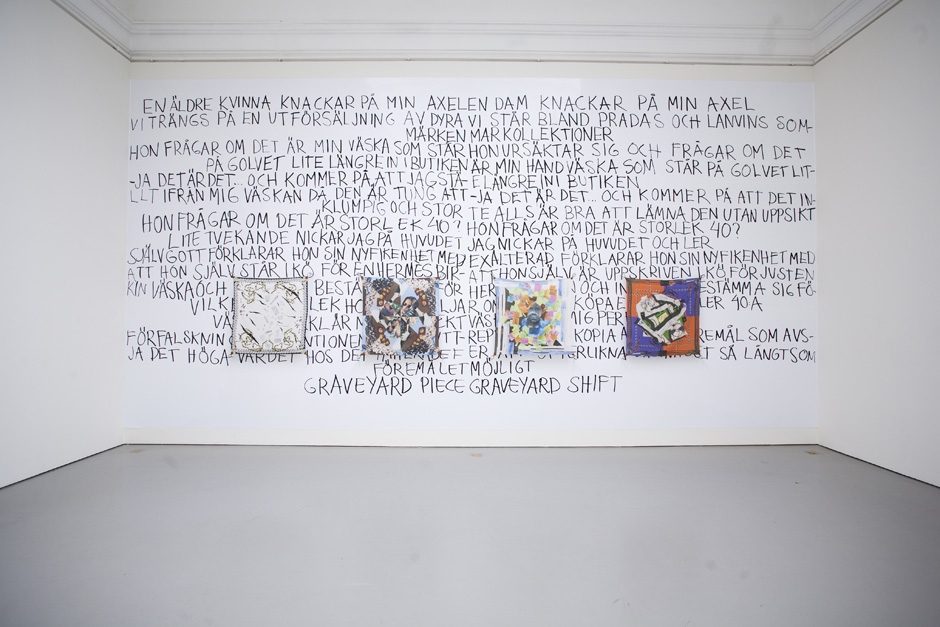 EN ÄLDRE KVINNA KNACKAR PÅ MIN AXELEN DAM KNACKAR PÅ MIN AXEL
VI TRÄNGS PÅ EN UTFÖRSÄLJNING AV DYRA VI STÅR BLAND PRADAS OCH LANVINS SOM-
MÄRKEN MARKOLLEKTIONER
HON FRÅGAR OM DET ÄR MIN VÄSKA SOM STÅR HON URSÄKTAR SIG OCH FRÅGAR OM DET
PÅ GOLVET LITE LÄNGRE IN I BUTIKEN ÄR MIN HANDVÄSKA SOM STÅR PÅ GOLVET LIT-
-JA DET ÄR DET... OCH KOMMER PÅ ATT JAG STÅ E LÄNGRE IN I BUTIKEN
LLT IFRÅN MIG VÄSKAN DÅ DEN ÄR TUNG ATT -JA DET ÄR DET... OCH KOMMER PÅ ATT DET IN-
KLUMPIG OCH STOR TE ALLS ÄR BRA ATT LÄMNA DEN UTAN UPPSIKT
HON FRÅGAR OM DET ÄR STORLEK 40? HON FRÅGAR OM DET ÄR STORLEK 40?
LITE TVEKANDE NICKAR JAG PÅ HUVUDET JAG NICKAR PÅ HUVUDET OCH LER
SJÄLVGOTT FÖRKLARAR HON SIN NYFIKENHET MED EXALTERAD FÖRKLARAR HON SIN NYFIKENHET MED
ATT HON SJÄLV STÅR I KÖ FÖR EN HERMÈS BIR- ATT HON SJÄLV ÄR UPPSKRIVEN I KÖ FÖR JUST EN
KIN VÄSKA OCH BESTÄ FÖR HER OCH IN ESTÄMMA SIG FÖ-
VILK LEK HO LJAR ON KÖPA LER 40 Å
VÄ KLÄR KT VÄS MIG PER
FÖRFALSKNIN NTIONE TT- REP KOPIA REMÅL SOM AVS-
JA DET HÖGA VÄRDET HOS DE DEF ER RLIKNA T SÅ LÅNGT SOM
FÖREMÅLET MÖJLIGT
GRAVEYARD PIECE GRAVEYARD SHIFT